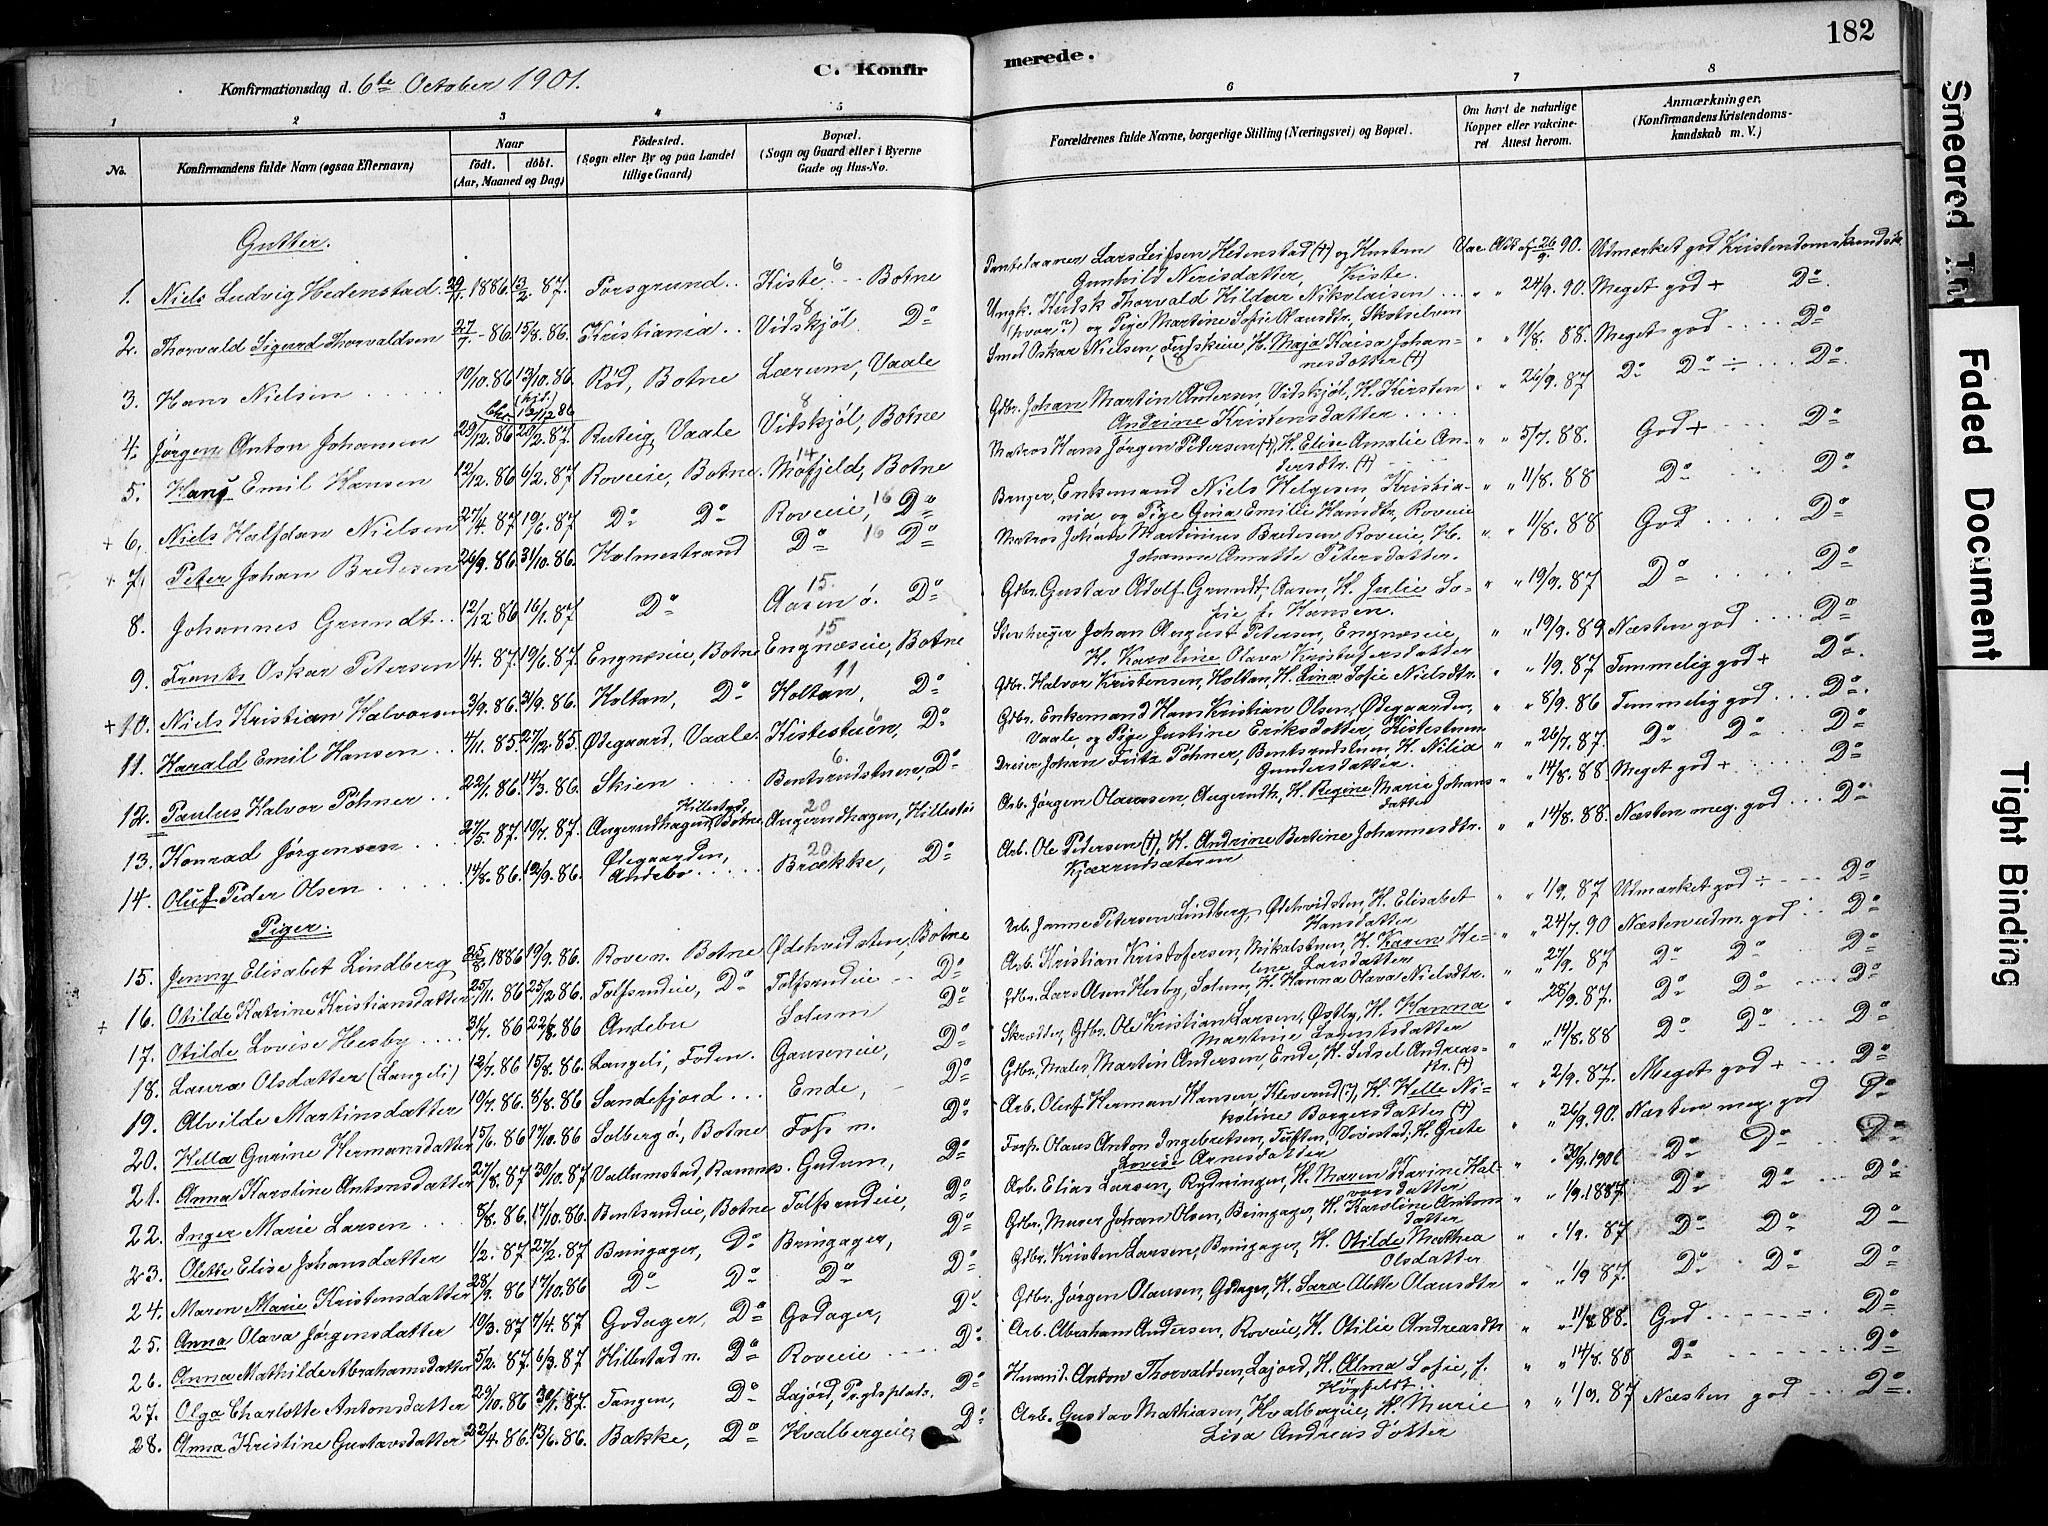 182
C. Konfirmerede.
Konfirmationsdag d. 6te October 1901.
1 2 3 4 5 6 7 8
No.
Konfirmandens fulde Navn (ogsaa Efternavn)
Naar
födt. döbt.
(Aar, Maaned og Dag)
Födested.
(Sogn eller By og paa Landet
tillige Gaard)
Bopæl.
(Sogn og Gaard eller i Byerne
Gade og Hus-No.
Forældrenes fulde Navne, borgerlige Stilling (Næringsvei) og Bopæl.
Om havt de naturlige
Kopper eller vakcine-
ret Attest herom.
Anmærkninger.
(Konfirmandens Kristendoms-
kundskab m. V.)
Gutter.
1. Niels Ludvig Hedenstad 1886 13/2. 87. Porsgrund Kiste 6 Botne Lars Leifsen Hedenstad (+) og Hustru Gunhild Nerisdatter, Kiste. 26/9 90. Udmærket god Kristendomskundsk.
2. Thorvald Sigurd Thorvaldsen 27/7 - 86 15/8. 86. Kristiania Vidskjøl 8 Do Ungk. Thorvald Hildar Nikolaisen (hvor?) og Pige Martine Sofie Olausdtr, Skotselven " " 24/9. 90. Meget god + Do
3. Hans Nielsen 10/10. 86 13/10. 86 (hjd.) Rød, Botne Lærum, Vaale Smed Oskar Nielsen, H. Maja Kaisa Johannesdatter (+) " " 11/8. 88. Meget god Do
4. Jørgen Anton Johansen 29/12. 86 20/2. 87. Ruteig, Vaale Vidskjøl, Botne 8 Gdbr. Johan Martin Andersen, Vidskjøl, H. Kirsten Andrine Kristensdatter " " 26/9. 87 Do Do ÷ Do
5. Hans Emil Hansen 12/12. 86 6/2. 87 Roveie, Botne Mofjeld, Botne 14 Matros Hans Jørgen Pedersen (+), H. Elise Amalie Andersdtr. (+) " " 5/7. 88. God + Do
+ 6. Niels Halfdan Nielsen 27/4. 87 19/6. 87 Do Do Roveie, 16 Do Enkemand Niels Helgesen, Kristiania, og Pige Gina Emilie Hansdtr, Roveie " " 11/8. 88 Do Do
+ 7. Peter Johan Bredesen 24/9. 86 31/10. 86. Holmestrand Do 16 Do Matros Johan Martinius Bredesen, Roveie, H. Johanne Annette Petersdatter. " " 11/8. 88 God Do
8. Johannes Grundt 12/12 86 16/1. 87 Do Aasen ø. 15. Do Gdbr. Gustav Adolf Grundt, Aasen, H. Julie Sofie f. Hansen. " " 19/9. 87 Do Do
9. Frants Oskar Petersen 1/4. 87. 19/6. 87. Engnæseie, Botne Engnæseie, Botne 15 Stenhugger Johan August Petersen, Engnæseie, H. Karoline Olava Kristofersdatter " " 19/9. 89 Næsten god Do
+ 10. Niels Kristian Halvorsen 3/9. 86. Holtan, Do Holtan, 11 Do Gdbr. Halvor Kristensen, Holtan, H. Lina Sofie Nielsdtr. " " 1/9. 87 Temmelig god + Do
11. Harald Emil Hansen 4/11. 85. 27/12. 85. Ødegaard, Vaale Kistestuen, 6 Do Gdbr. Enkemand Hans Kristian Olsen, Ødegaarden, Vaale, og Pige Justine Eriksdatter, Kistestuen " " 8/9. 86 Temmelig god Do
12. Paulus Halvor Pöhner 22/1. 86. 14/3. 86. Skien Bentsrudstuen, 6. Do Dreier Johan Fritz Pöhner, Bentsrudstuen, H. Nilia Gundersdatter. " " 26/7. 87. Do Do Do
13. Konrad Jørgensen 27/5. 87. 19/7. 87. Angerudhagen, Hillestad, Botne Angerudhagen, Hillestad 20 Arb. Jørgen Olausen, Angerudh., H. Regine Marie Johansdatter " " 14/8. 88 Meget god + Do
14. Oluf Peder Olsen 14/8. 86. 12/9. 86. Ødegaarden, Andebo Brække, 20. Do Arb. Ole Pedersen (+), H. Andrine Bertine Johannesdtr. Kjærrudsæteren " " 14/8. 88. Næsten meg. god Do
Piger.
15. Jenny Elisabet Lindberg 25/8 1886 19/9. 86. Rove n. Botne Ødehvidsten, Botne Arb. Janne Petersen Lindberg, Ødehvidsten, H. Elisabet Hansdatter " " 1/9. 87 Udmærket god ÷ Do
+ 16. Otilde Katrine Kristiansdatter 25/11. 86 25/12 86. Tolfsrudeie, Do Tolfsrudeie Do Arb. Kristian Kristofersen, Mikalstuen, H. Karen Helene Larsdatter " " 24/7. 90 Næsten udm. god Do
17. Otilde Lovise Hesby 31/7. 86 22/8. 86 Andebu Solum Do Gdbr. Lars Olsen Hesby, Solum, H. Hanna Olava Nielsdtr. " " 27/9. 87 Do Do Do
18. Laura Olsdatter (Langeli) 12/7 86 15/8. 86 Langeli, Foden. Gauseneie, Do Skrædder, Gdbr. Ole Kristian Larsen, Østby, H. Hanna Martine Larentsdatter " " 28/9. 87. Do Do Do
19. Alvilde Martinsdatter 19/7. 86. 8/8. 86 Sandefjord Ende, Do Gdbr, Maler, Martin Andersen, Ende, H. Sidsel Andreasdtr. (+) " " 14/8. 88 Do Do Do
20. Hella Gurine Hermansdatter 15/6. 86 17/10. 86 Solberg ø., Botne Foss m. Do Arb. Oluf Herman Hansen, Kleverud (?), H. Helle Nikoline Borgersdatter (+) " " 2/9. 87. Meget god + Do
21. Anna Karoline Antonsdatter 27/8. 87 30/10. 87 Vallumstad, Ramnes. Gudum, Do Forp. Olaus Anton Ingebretsen, Tuften, H. Grete Lovise Arnesdatter " " 26/9. 90. Næsten meg. god Do
22. Inger Marie Larsen 5/8. 86. 17/10. 86 Bentsrudeie, Botne Tolfsrudeie, Do Arb. Elias Larsen, Rydningen, H. Maren Karine Halvorsdatter " " 30/9. 1900 Do Do Do
23. Olette Elise Johansdatter 1/2. 87 27/2. 87 Bringager, Do Bringager, Do Gdbr, Murer Johan Olsen, Bringager, H. Karoline Antonsdatter " " 1/9. 1887. Do Do Do
24. Maren Marie Kristensdatter 28/9. 86 17/10. 86 Do Do Do Do Gdbr. Kristen Larsen, Bringager, H. Otilde Mathea Olsdatter " " 1/9. 87 Do Do Do
25. Anna Olava Jørgensdatter 19/3. 87 7/4. 87 Godager, Do Godager, Do Gdbr. Jørgen Olausen, Godager, H. Sara Olette Olausdtr " " 1/9 87. Do Do Do
26. Anna Mathilde Abrahamsdatter 5/2. 87. 6/3. 87 Hillestad n. Do Roveie Do Arb. Abraham Andersen, Roveie, H. Otilie Andreasdtr " " 11/8 88. God Do
27. Olga Charlotte Antonsdatter 29/10. 86 30/1. 87. Tangen, Do Lajord, Prgdsplads, Do Husmd. Anton Thorvaldsen, Lajord, H. Alma Sofie, f. Högfeldt. " " 14/8. 88 Do Do
28. Anna Kristine Gustavsdatter 22/4. 86. 13/6. 86. Bakke, Do Hvalbergeie, Do Arb. Gustav Mathiasen, Hvalbergeie, H. Marie Lisa Andreasdotter " " 1/9. 87 Næsten god Do
Smeared
Faded Document
Tight Binding